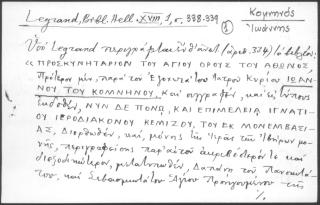 Legrand, Bibl. Hell. XVIII, 1, σ. 338-339
Κομνηνός
Ἰωάννης
1
Ὑπὸ Legrand περιγράφεται ἐνθαῦτα (ἀριθ. 334) τὸ βιβλίον:
"ΠΡΟΣΚΥΝΗΤΑΡΙΟΝ ΤΟΥ ΑΓΙΟΥ ΟΡΟΥΣ ΤΟΥ ΑΘΩΝΟΣ,
Πρότερον μὲν, παρὰ τοῦ Ἐξοχωτάτου Ἰατροῦ Κυρίου ΙΩΑΝ-
ΝΟΥ ΤΟΥ ΚΟΜΝΗΝΟΥ, καὶ συγγραφὲν, καὶ τύποις
ἐκδοθὲν, ΝΥΝ ΔΕ ΠΟΝΩ, ΚΑΙ ΕΠΙΜΕΛΕΙΑ ΙΓΝΑΤΙ-
ΟΥ ΙΕΡΟΔΙΑΚΟΝΟΥ ΚΕΜΙΖΟΥ, ΤΟΥ ΕΚ ΜΟΝΕΜΒΑΣΙ-
ΑΣ, Διορθωθὲν, καὶ, μόνης τῆς Ἱερᾶς τῶν Ἰβήρων μο-
νῆς, περιγραφείσης παρ' αὐτοῦ ἀκριβέστερόν τε καὶ
διεξοδικώτερον, μετατυπωθὲν, Δαπάνῃ τοῦ Πανοσιωτά-
του, καὶ Σεβασμιωτάτου Ἁγίου Προηγουμένου τῆς